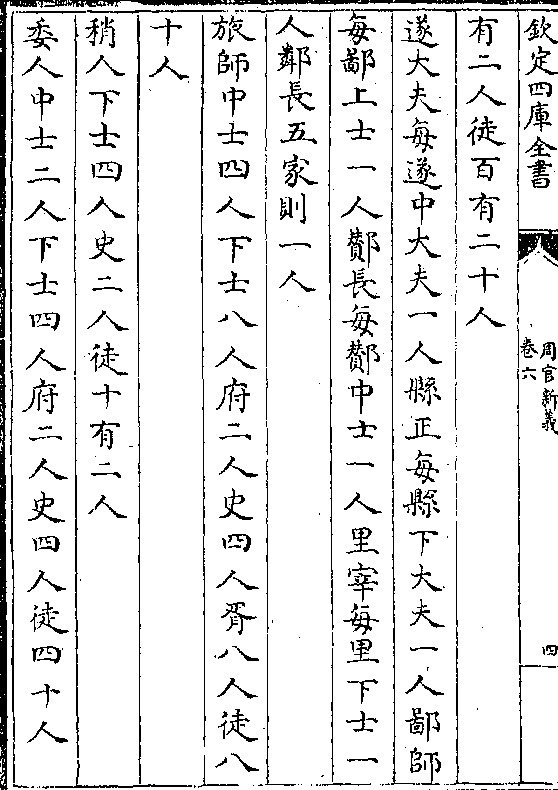 欽定四庫全書
周官新義
卷六
四
有二人徒百有二十人
遂大夫每遂中大夫一人縣正每縣下大夫一人鄙師
每鄙上士一人酇長每酇中士一人里宰每里下士一
人鄰長五家則一人
旅師中士四人下士八人府二人史四人胥八人徒八
十人
稍人下士四人史二人徒十有二人
委人中士二人下士四人府二人史四人徒四十人